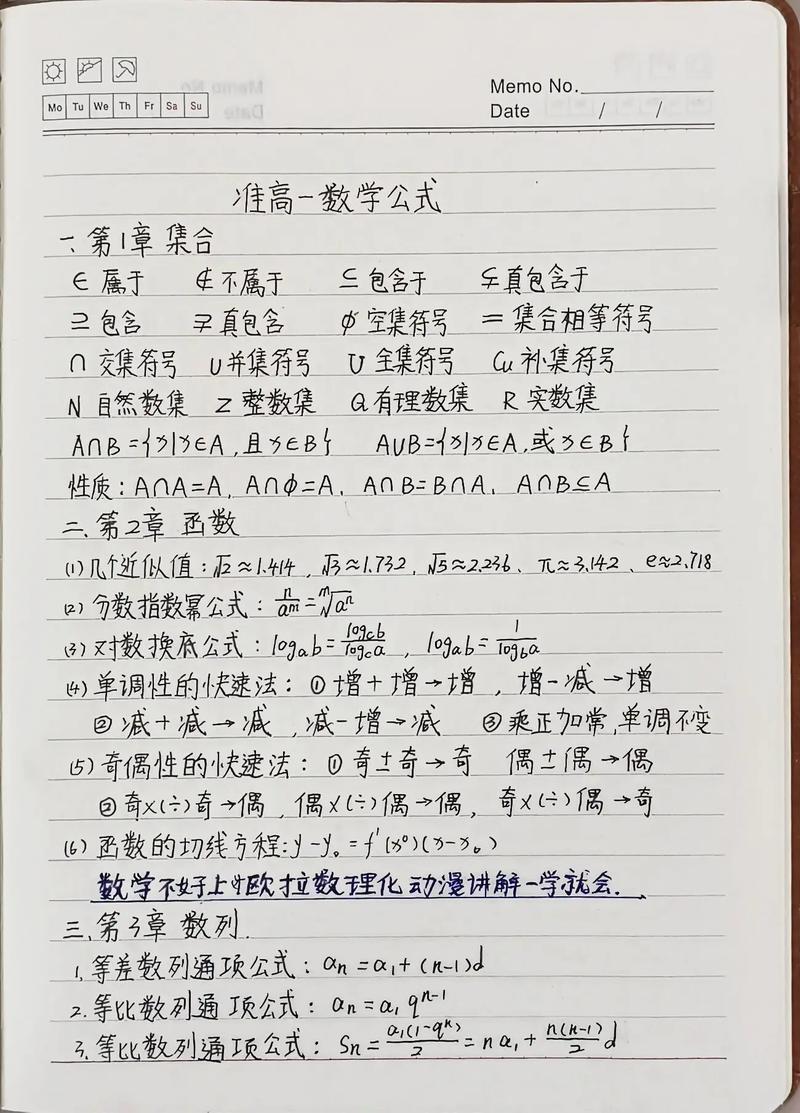 Memo No.
Mo Tu We Th Fr Sa Su
Date / /
准高一数学公式
一、第1章 集合
∈ 属于 ∉ 不属于 ⊆ 包含于 ⫋ 真包含于
⊇ 包含 ⫌ 真包含 ϕ 空集符号 = 集合相等符号
∩ 交集符号 ∪ 并集符号 U 全集符号 Cu 补集符号
N 自然数集 Z 整数集 Q 有理数集 R 实数集
A∩B={x|x∈A,且x∈B} A∪B={x|x∈A,或x∈B}
性质:A∩A=A、A∩ϕ=A、A∩B=B∩A、A∩B⊆A
二、第2章 函数
(1)几个近似值:√2≈1.414、√3≈1.732、√5≈2.236、π≈3.142、e≈2.718
(2)分数指数幂公式:n/aᵐ=ᵐ√aⁿ
(3)对数换底公式:logₐb=log꜀b/log꜀a,logₐb=1/log_b a
(4)单调性的快速法:①增+增→增,增-减→增
②减+减→减,减-增→减 ③乘正加常,单调不变
(5)奇偶性的快速法:①奇±奇→奇 偶±偶→偶
②奇×(÷)奇→偶,偶×(÷)偶→偶,奇×(÷)偶→奇
(6)函数的切线方程:y-y₀=f'(x⁰)(x-x₀)
数学不好上b欧拉数理化动漫讲解一学就会.
三、第3章 数列.
1.等差数列通项公式:aₙ=a₁+(n-1)d
2.等比数列通项公式:aₙ=a₁qⁿ⁻¹
3.等比数列通项公式:Sₙ=a₁(1-qⁿ)/2=na₁+n(n-1)/2 d